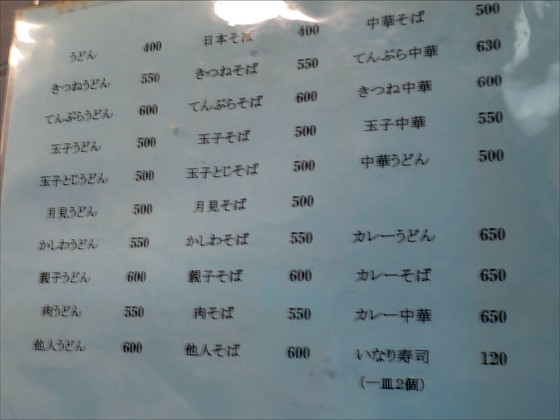 うどん 400
きつねうどん 550
てんぷらうどん 600
玉子うどん 500
玉子とじうどん 500
月見うどん 500
かしわうどん 550
親子うどん 600
肉うどん 550
他人うどん 600
日本そば 400
きつねそば 550
てんぷらそば 600
玉子そば 500
玉子とじそば 500
月見そば 500
かしわそば 550
親子そば 600
肉そば 550
他人そば 600
中華そば 500
てんぷら中華 630
きつね中華 600
玉子中華 550
中華うどん 500
カレーうどん 650
カレーそば 650
カレー中華 650
いなり寿司 120
(一皿2個)